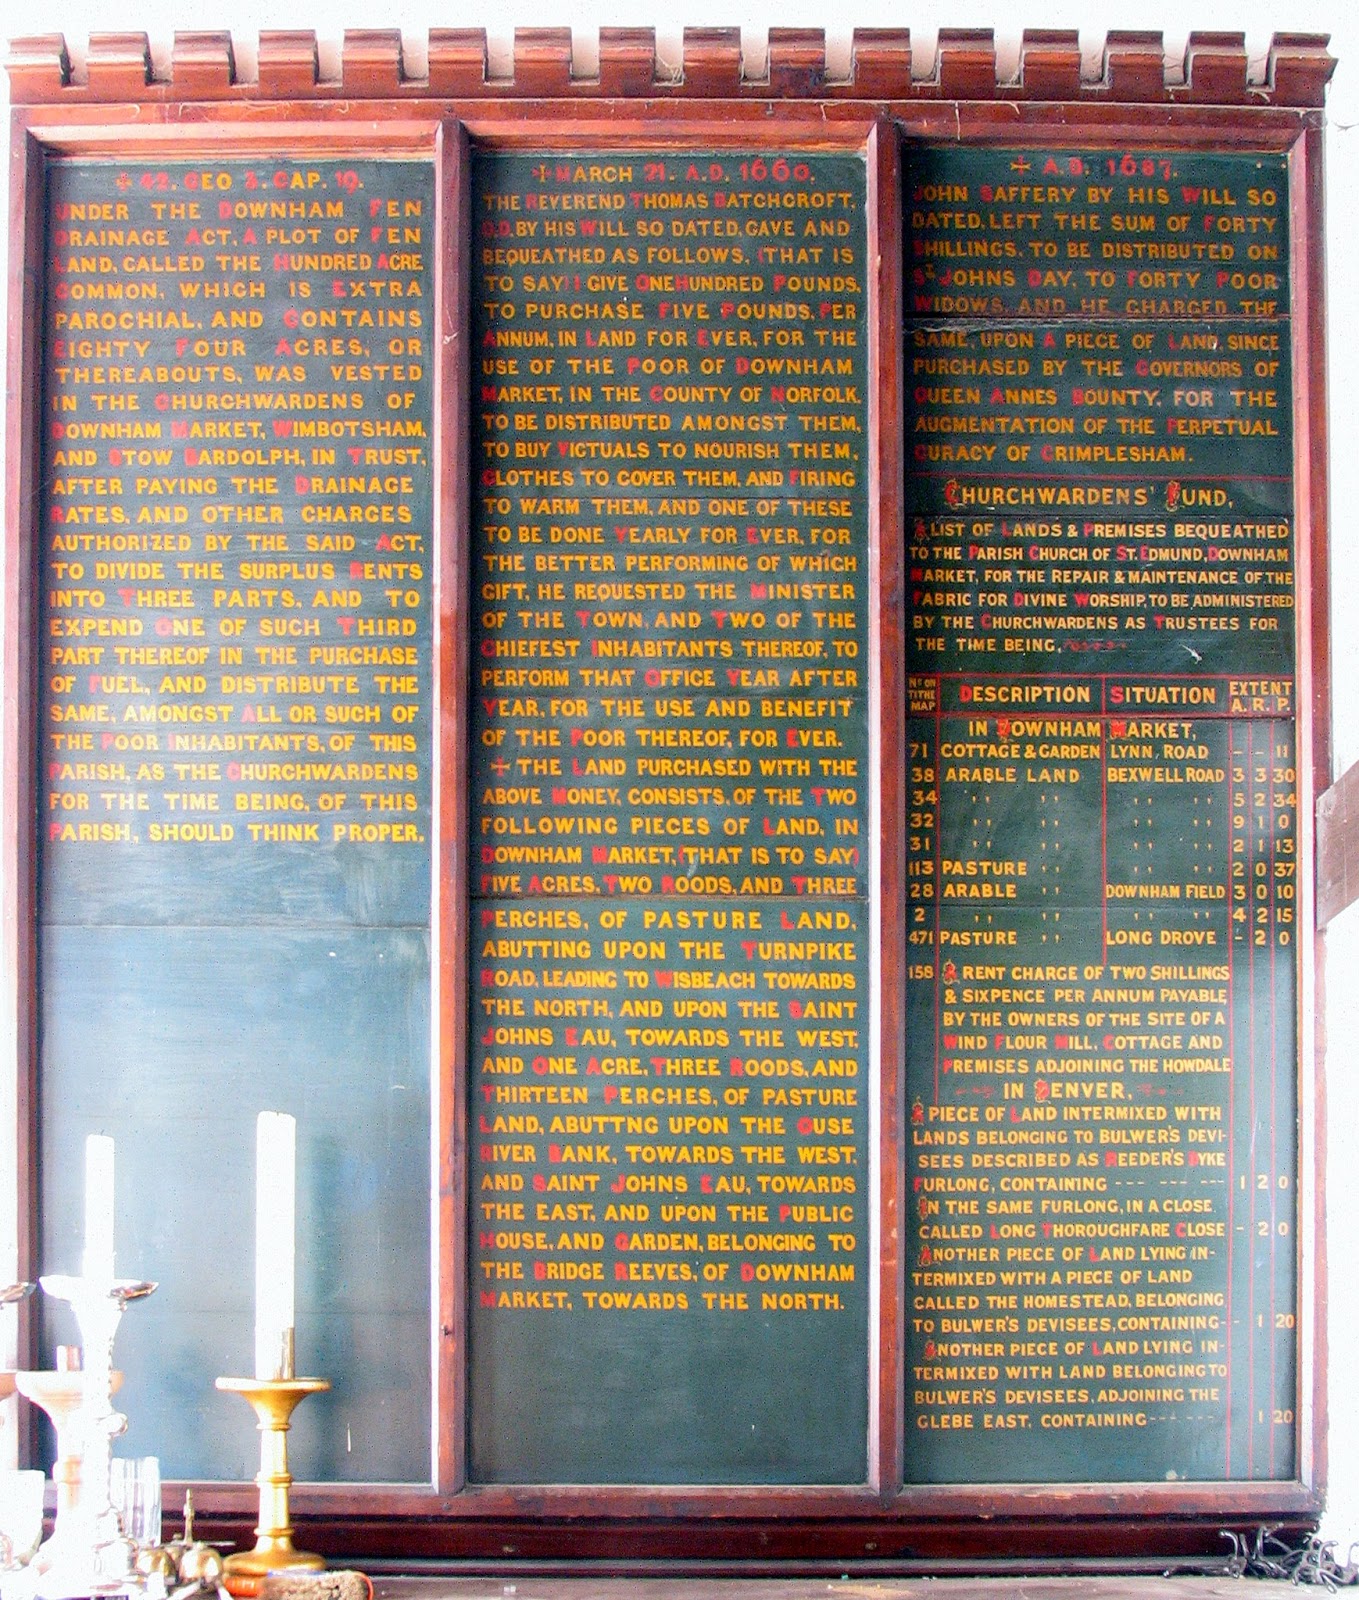 42. GEO 3. CAP. 19.
UNDER THE DOWNHAM FEN
DRAINAGE ACT, A PLOT OF FEN
LAND, CALLED THE HUNDRED ACRE
COMMON, WHICH IS EXTRA
PAROCHIAL, AND CONTAINS
EIGHTY FOUR ACRES, OR
THEREABOUTS, WAS VESTED
IN THE CHURCHWARDENS OF
DOWNHAM MARKET, WIMBOTSHAM,
AND STOW BARDOLPH, IN TRUST,
AFTER PAYING THE DRAINAGE
RATES, AND OTHER CHARGES
AUTHORIZED BY THE SAID ACT,
TO DIVIDE THE SURPLUS RENTS
INTO THREE PARTS, AND TO
EXPEND ONE OF SUCH THIRD
PART THEREOF IN THE PURCHASE
OF FUEL, AND DISTRIBUTE THE
SAME, AMONGST ALL OR SUCH OF
THE POOR INHABITANTS, OF THIS
PARISH, AS THE CHURCHWARDENS
FOR THE TIME BEING, OF THIS
PARISH, SHOULD THINK PROPER.
MARCH 21. A.D. 1660.
THE REVEREND THOMAS BATCHCROFT,
D.D. BY HIS WILL SO DATED, GAVE AND
BEQUEATHED AS FOLLOWS, (THAT IS
TO SAY) I GIVE ONE HUNDRED POUNDS,
TO PURCHASE FIVE POUNDS, PER
ANNUM, IN LAND FOR EVER, FOR THE
USE OF THE POOR OF DOWNHAM
MARKET, IN THE COUNTY OF NORFOLK,
TO BE DISTRIBUTED AMONGST THEM,
TO BUY VICTUALS TO NOURISH THEM,
CLOTHES TO COVER THEM, AND FIRING
TO WARM THEM, AND ONE OF THESE
TO BE DONE YEARLY FOR EVER, FOR
THE BETTER PERFORMING OF WHICH
GIFT, HE REQUESTED THE MINISTER
OF THE TOWN, AND TWO OF THE
CHIEFEST INHABITANTS THEREOF, TO
PERFORM THAT OFFICE YEAR AFTER
YEAR, FOR THE USE AND BENEFIT
OF THE POOR THEREOF, FOR EVER.
THE LAND PURCHASED WITH THE
ABOVE MONEY, CONSISTS, OF THE TWO
FOLLOWING PIECES OF LAND, IN
DOWNHAM MARKET, (THAT IS TO SAY)
FIVE ACRES, TWO ROODS, AND THREE
PERCHES, OF PASTURE LAND,
ABUTTING UPON THE TURNPIKE
ROAD, LEADING TO WISBEACH TOWARDS
THE NORTH, AND UPON THE SAINT
JOHNS EAU, TOWARDS THE WEST,
AND ONE ACRE, THREE ROODS, AND
THIRTEEN PERCHES, OF PASTURE
LAND, ABUTTNG UPON THE OUSE
RIVER BANK, TOWARDS THE WEST,
AND SAINT JOHNS EAU, TOWARDS
THE EAST, AND UPON THE PUBLIC
HOUSE, AND GARDEN, BELONGING TO
THE BRIDGE REEVES, OF DOWNHAM
MARKET, TOWARDS THE NORTH.
A.D. 1687.
JOHN SAFFERY BY HIS WILL SO
DATED, LEFT THE SUM OF FORTY
SHILLINGS, TO BE DISTRIBUTED ON
ST. JOHNS DAY, TO FORTY POOR
WIDOWS, AND HE CHARGED THE
SAME, UPON A PIECE OF LAND, SINCE
PURCHASED BY THE GOVERNORS OF
QUEEN ANNES BOUNTY, FOR THE
AUGMENTATION OF THE PERPETUAL
CURACY OF CRIMPLESHAM.
CHURCHWARDENS' FUND,
A LIST OF LANDS & PREMISES BEQUEATHED
TO THE PARISH CHURCH OF ST. EDMUND, DOWNHAM
MARKET, FOR THE REPAIR & MAINTENANCE OF THE
FABRIC FOR DIVINE WORSHIP, TO BE ADMINISTERED
BY THE CHURCHWARDENS AS TRUSTEES FOR
THE TIME BEING,
NO. ON TITHE MAP DESCRIPTION SITUATION EXTENT A. R. P.
IN DOWNHAM MARKET,
71 COTTAGE & GARDEN LYNN, ROAD - - 11
38 ARABLE LAND BEXWELL ROAD 3 3 30
34 ,, ,, ,, ,, 5 2 34
32 ,, ,, ,, ,, 9 1 0
31 ,, ,, ,, ,, 2 1 13
113 PASTURE ,, ,, ,, 2 0 37
28 ARABLE ,, DOWNHAM FIELD 3 0 10
2 ,, ,, ,, ,, 4 2 15
471 PASTURE ,, LONG DROVE - 2 0
158 A RENT CHARGE OF TWO SHILLINGS
& SIXPENCE PER ANNUM PAYABLE
BY THE OWNERS OF THE SITE OF A
WIND FLOUR MILL, COTTAGE AND
PREMISES ADJOINING THE HOWDALE
IN DENVER,
A PIECE OF LAND INTERMIXED WITH
LANDS BELONGING TO BULWER'S DEVI-
SEES DESCRIBED AS REEDER'S DYKE
FURLONG, CONTAINING --- --- --- 1 2 0
IN THE SAME FURLONG, IN A CLOSE
CALLED LONG THOROUGHFARE CLOSE - 2 0
ANOTHER PIECE OF LAND LYING IN-
TERMIXED WITH A PIECE OF LAND
CALLED THE HOMESTEAD, BELONGING
TO BULWER'S DEVISEES, CONTAINING-- 1 20
ANOTHER PIECE OF LAND LYING IN-
TERMIXED WITH LAND BELONGING TO
BULWER'S DEVISEES, ADJOINING THE
GLEBE EAST, CONTAINING--- --- 1 20